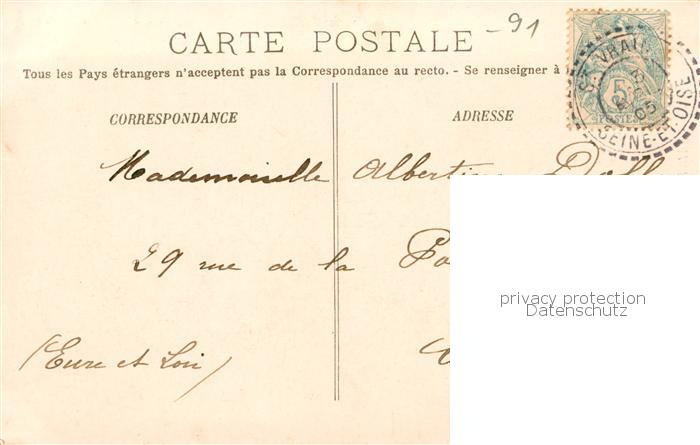 CARTE POSTALE
-91
Tous les Pays étrangers n'acceptent pas la Correspondance au recto. - Se renseigner à
CORRESPONDANCE
ADRESSE
ST VRAIN
05
SEINE-ET-OISE
5
POSTES
Mademoiselle
29 rue de la
(Eure et Loir)
privacy protection
Datenschutz